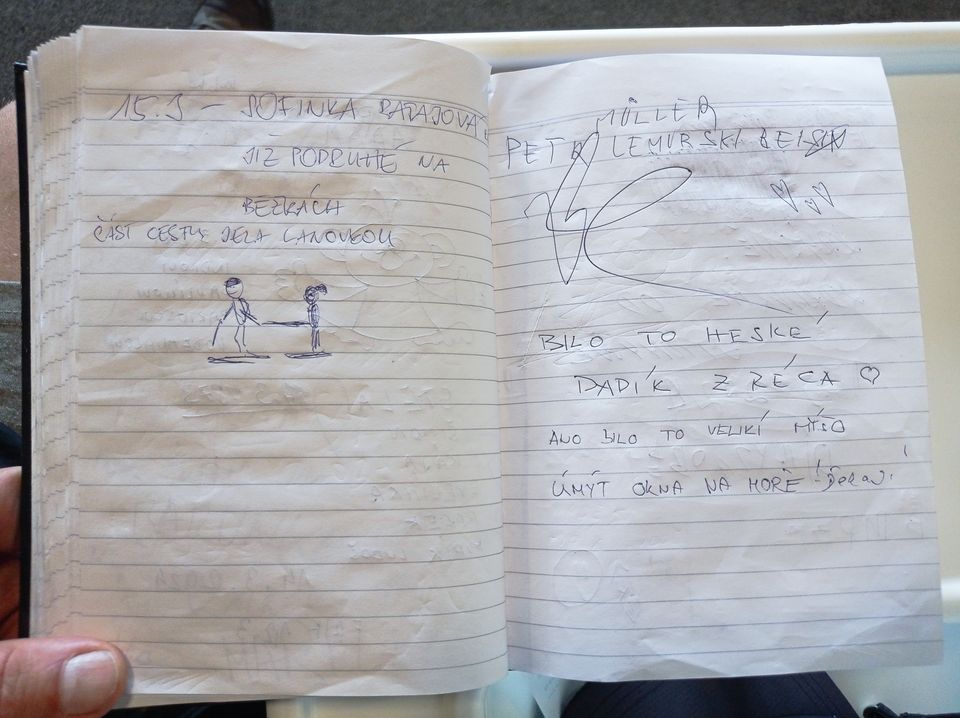 15.3 - SOFINKA BADAJOVÁ
JIŽ PODRUHÉ NA
BEZKÁCH
ČÁST CESTY JELA LANOVKOU
MÜLLER
PETR LEMURSKI
BILO TO HESKÉ
DADÍK Z RÉCA ♡
ANO BILO TO VELIKÍ MÝSO
ÚMÝT OKNA NA MOŘE!